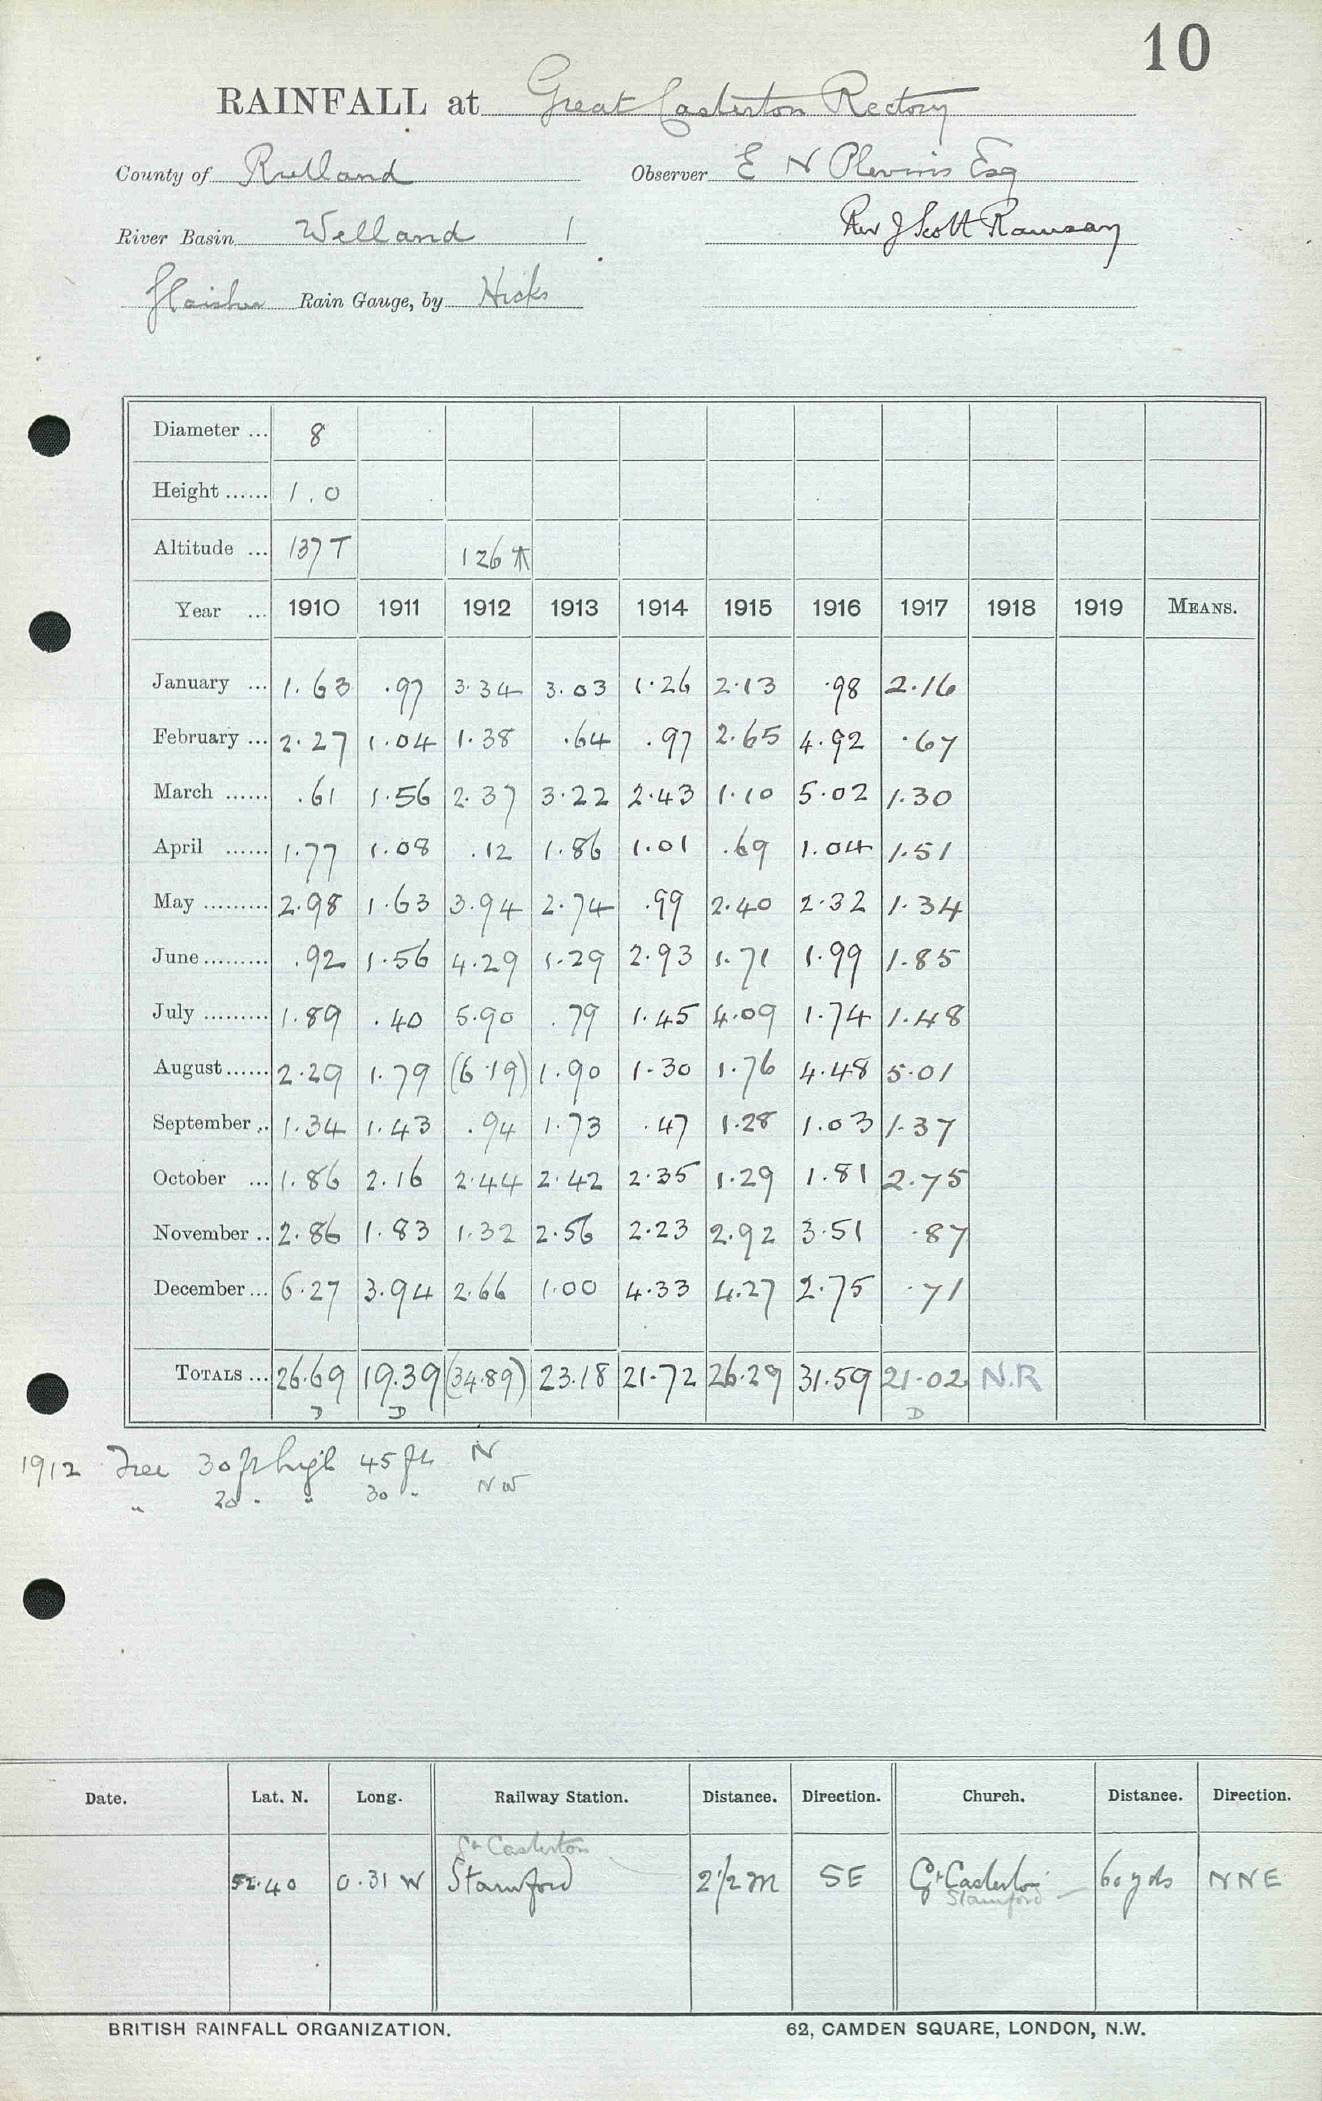 10
RAINFALL at Great Casterton Rectory
County of Rutland Observer E N Plevins Esq
River Basin Welland 1 Rev J Scott Ramsay
Glaisher Rain Gauge, by Hicks
Diameter ... 8
Height ...... 1.0
Altitude ... 137 T 126
Year ... 1910 1911 1912 1913 1914 1915 1916 1917 1918 1919 MEANS.
January ... 1.63 .97 3.34 3.03 1.26 2.13 .98 2.16
February ... 2.27 1.04 1.38 .64 .97 2.65 4.92 .67
March ...... .61 1.56 2.37 3.22 2.43 1.10 5.02 1.30
April ...... 1.77 1.08 .12 1.86 1.01 .69 1.04 1.51
May ......... 2.98 1.63 3.94 2.74 .99 2.40 2.32 1.34
June ......... .92 1.56 4.29 1.29 2.93 1.71 1.99 1.85
July ......... 1.89 .40 5.90 .79 1.45 4.09 1.74 1.48
August ...... 2.29 1.79 (6.19) 1.90 1.30 1.76 4.48 5.01
September .. 1.34 1.43 .94 1.73 .47 1.28 1.03 1.37
October ... 1.86 2.16 2.44 2.42 2.35 1.29 1.81 2.75
November .. 2.86 1.83 1.32 2.56 2.23 2.92 3.51 .87
December ... 6.27 3.94 2.66 1.00 4.33 4.27 2.75 .71
TOTALS ... 26.69 19.39 (34.89) 23.18 21.72 26.29 31.59 21.02 N.R
D D D
1912 Tree 30 ft high 45 ft N
" 20 " " 30 " NW
Date. Lat. N. Long. Railway Station. Distance. Direction. Church. Distance. Direction.
Gt Casterton
52.40 0.31 W Stamford 2 1/2 m SE Gt Casterton 60 yds NNE
Stamford
BRITISH RAINFALL ORGANIZATION. 62, CAMDEN SQUARE, LONDON, N.W.